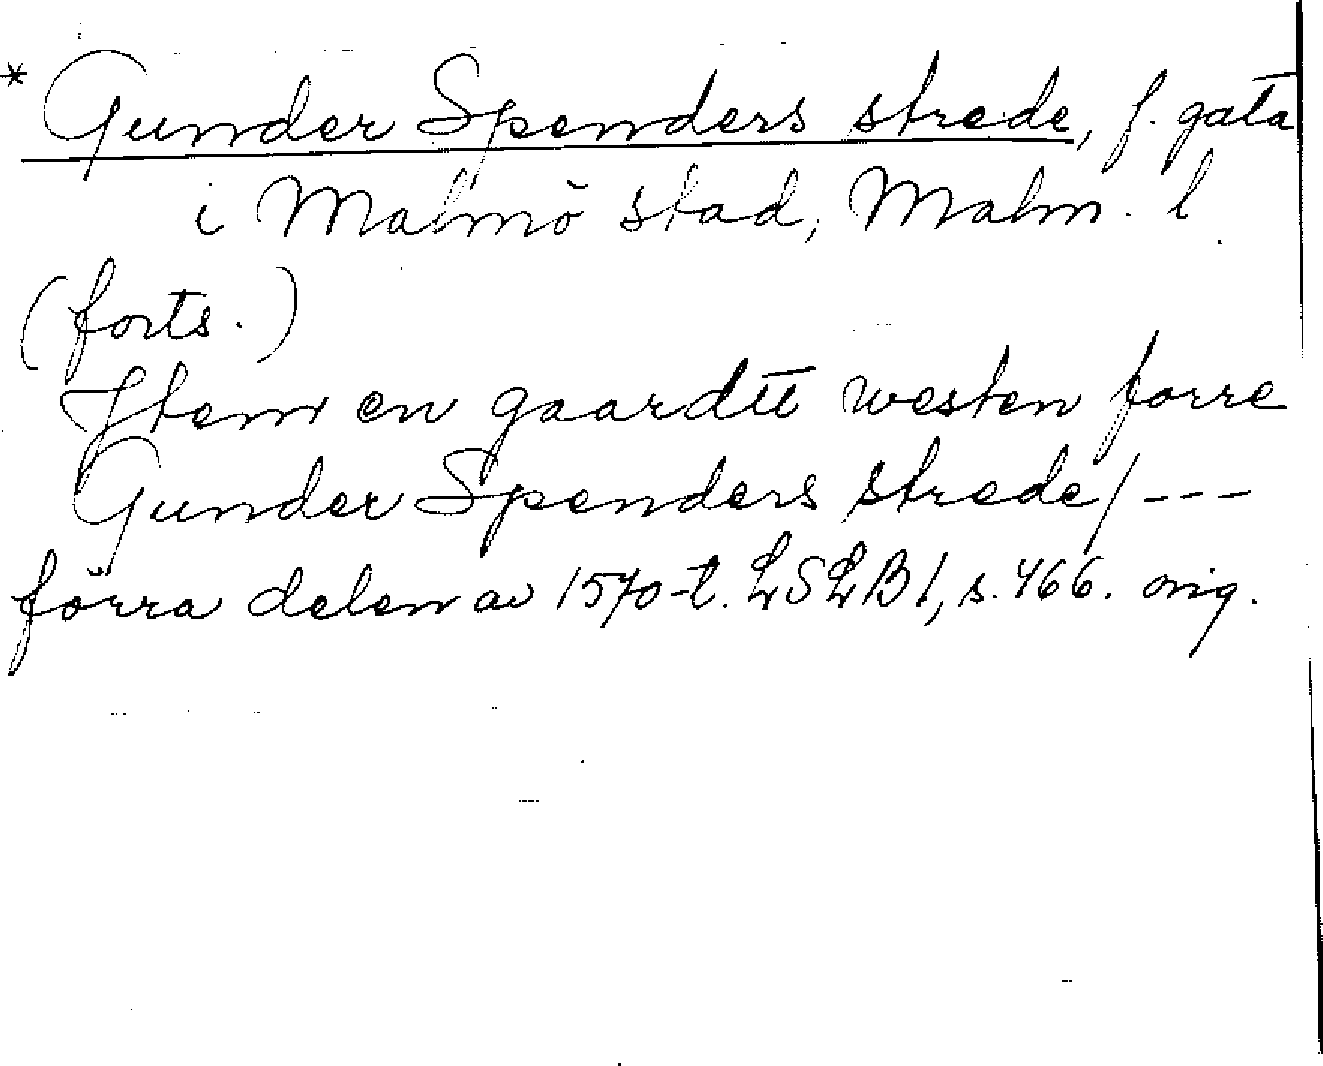 * Gunder Spenders strede, f. gata
i Malmö stad, Malm. l.
(forts.)
Jtem en gaardtt westen forre
Gunder Spenders strede/ ---
förra delen av 1570-t. LSLB I, s. 466. orig.